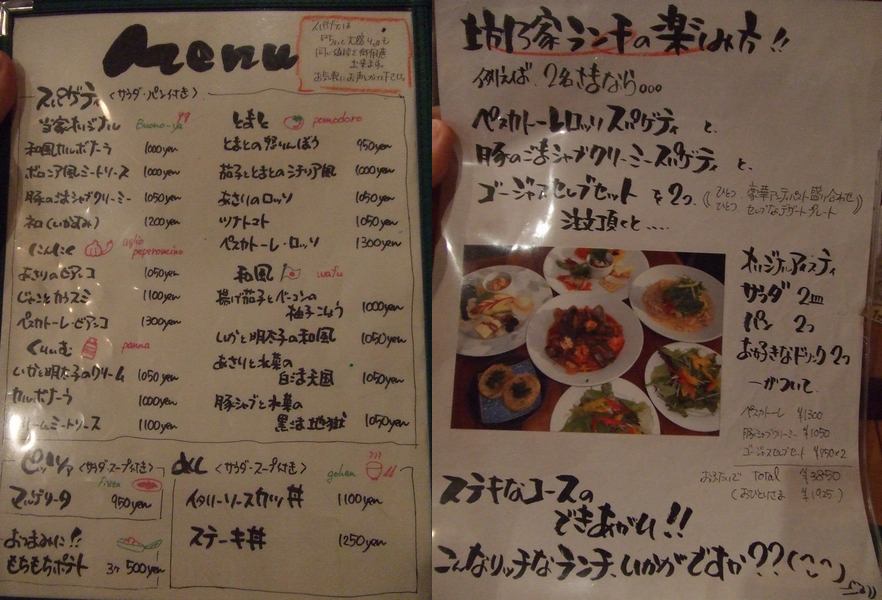 menu
大盛り
同じ値段で
出来ます。
スパゲティ 〈サラダ・パン付き〉
当家オリジナル Buono-ya
和風カルボナーラ 1000yen
ボロニア風ミートソース 1000yen
豚のごまシャブクリーミー 1050yen
和(いかすみ) 1200yen
にんにく aglio peperoncino
あさりのビアンコ 1050yen
じゃことカラスミ 1100yen
ペスカトーレ・ビアンコ 1300yen
くりぃむ panna
いかと明太子のクリーム 1050yen
カルボナーラ 1000yen
クリームミートソース 1100yen
とまと pomodoro
とまとの 950yen
茄子ととまとのシチリア風 1000yen
あさりのロッソ 1050yen
ツナトマト 1050yen
ペスカトーレ・ロッソ 1300yen
和風 wafu
揚げ茄子とベーコンの
柚子こしょう 1000yen
いかと明太子の和風 1050yen
あさりと水菜の
1050yen
豚シャブと水菜の
1050yen
ピッツァ 〈サラダ・スープ付き〉
マルゲリータ 950yen
おつまみに!!
もちもちポテト 3ケ 500yen
〈サラダ・スープ付き〉
gohan
イタリーソースカツ丼 1100yen
ステーキ丼 1250yen
家ランチの楽しみ方!!
例えば、2名さまなら。。。
ペスカトーレロッソスパゲティ と、
豚のごまシャブクリーミースパゲティ と、
ゴージャスセレブセット を2つ、
ひとつ 豪華アンティパスト盛り合わせ
ひとつ セレブなデザートプレート
注文頂くと....
オリジナルアイスティ
サラダ 2皿
パン 2つ
お好きなドリンク2つ
がついて、
ペスカトーレ ¥1300
豚シャブクリーミー ¥1050
ゴージャスセレブセット ¥750×2
おふたりで TOTAL ¥3850
(おひとりさま ¥1925)
ステキなコースの
できあがり!!
こんなリッチなランチ、いかがですか??